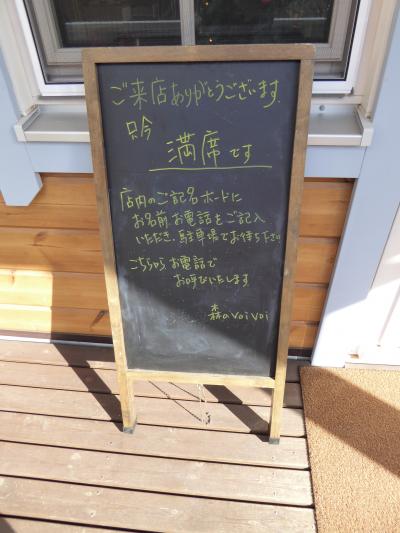 ご来店ありがとうございます
只今
満席です
店内のご記名ボードに
お名前お電話をご記入
いただき、駐車場でお待ち下さい
こちらから、お電話で
お呼びいたします
森のvoivoi